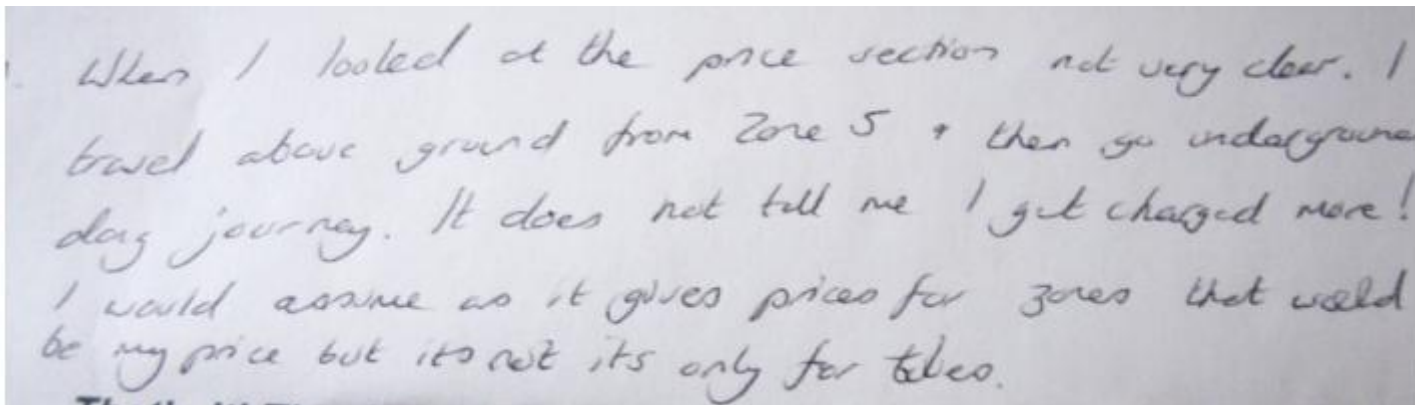 When I looked at the price section not very clear. I
travel above ground from Zone 5 + then go underground
day journey. It does not tell me I get charged more!
I would assume as it gives prices for zones that would
be my price but its not its only for tubes.